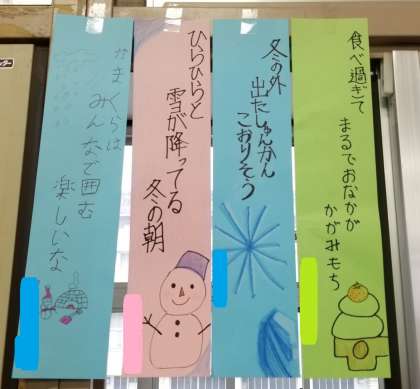 食べ過ぎて
まるでおなかが
かがみもち
冬の外
出たしゅんかん
こおりそう
ひらひらと
雪が降ってる
冬の朝
かまくらは
みんなで囲む
楽しいな